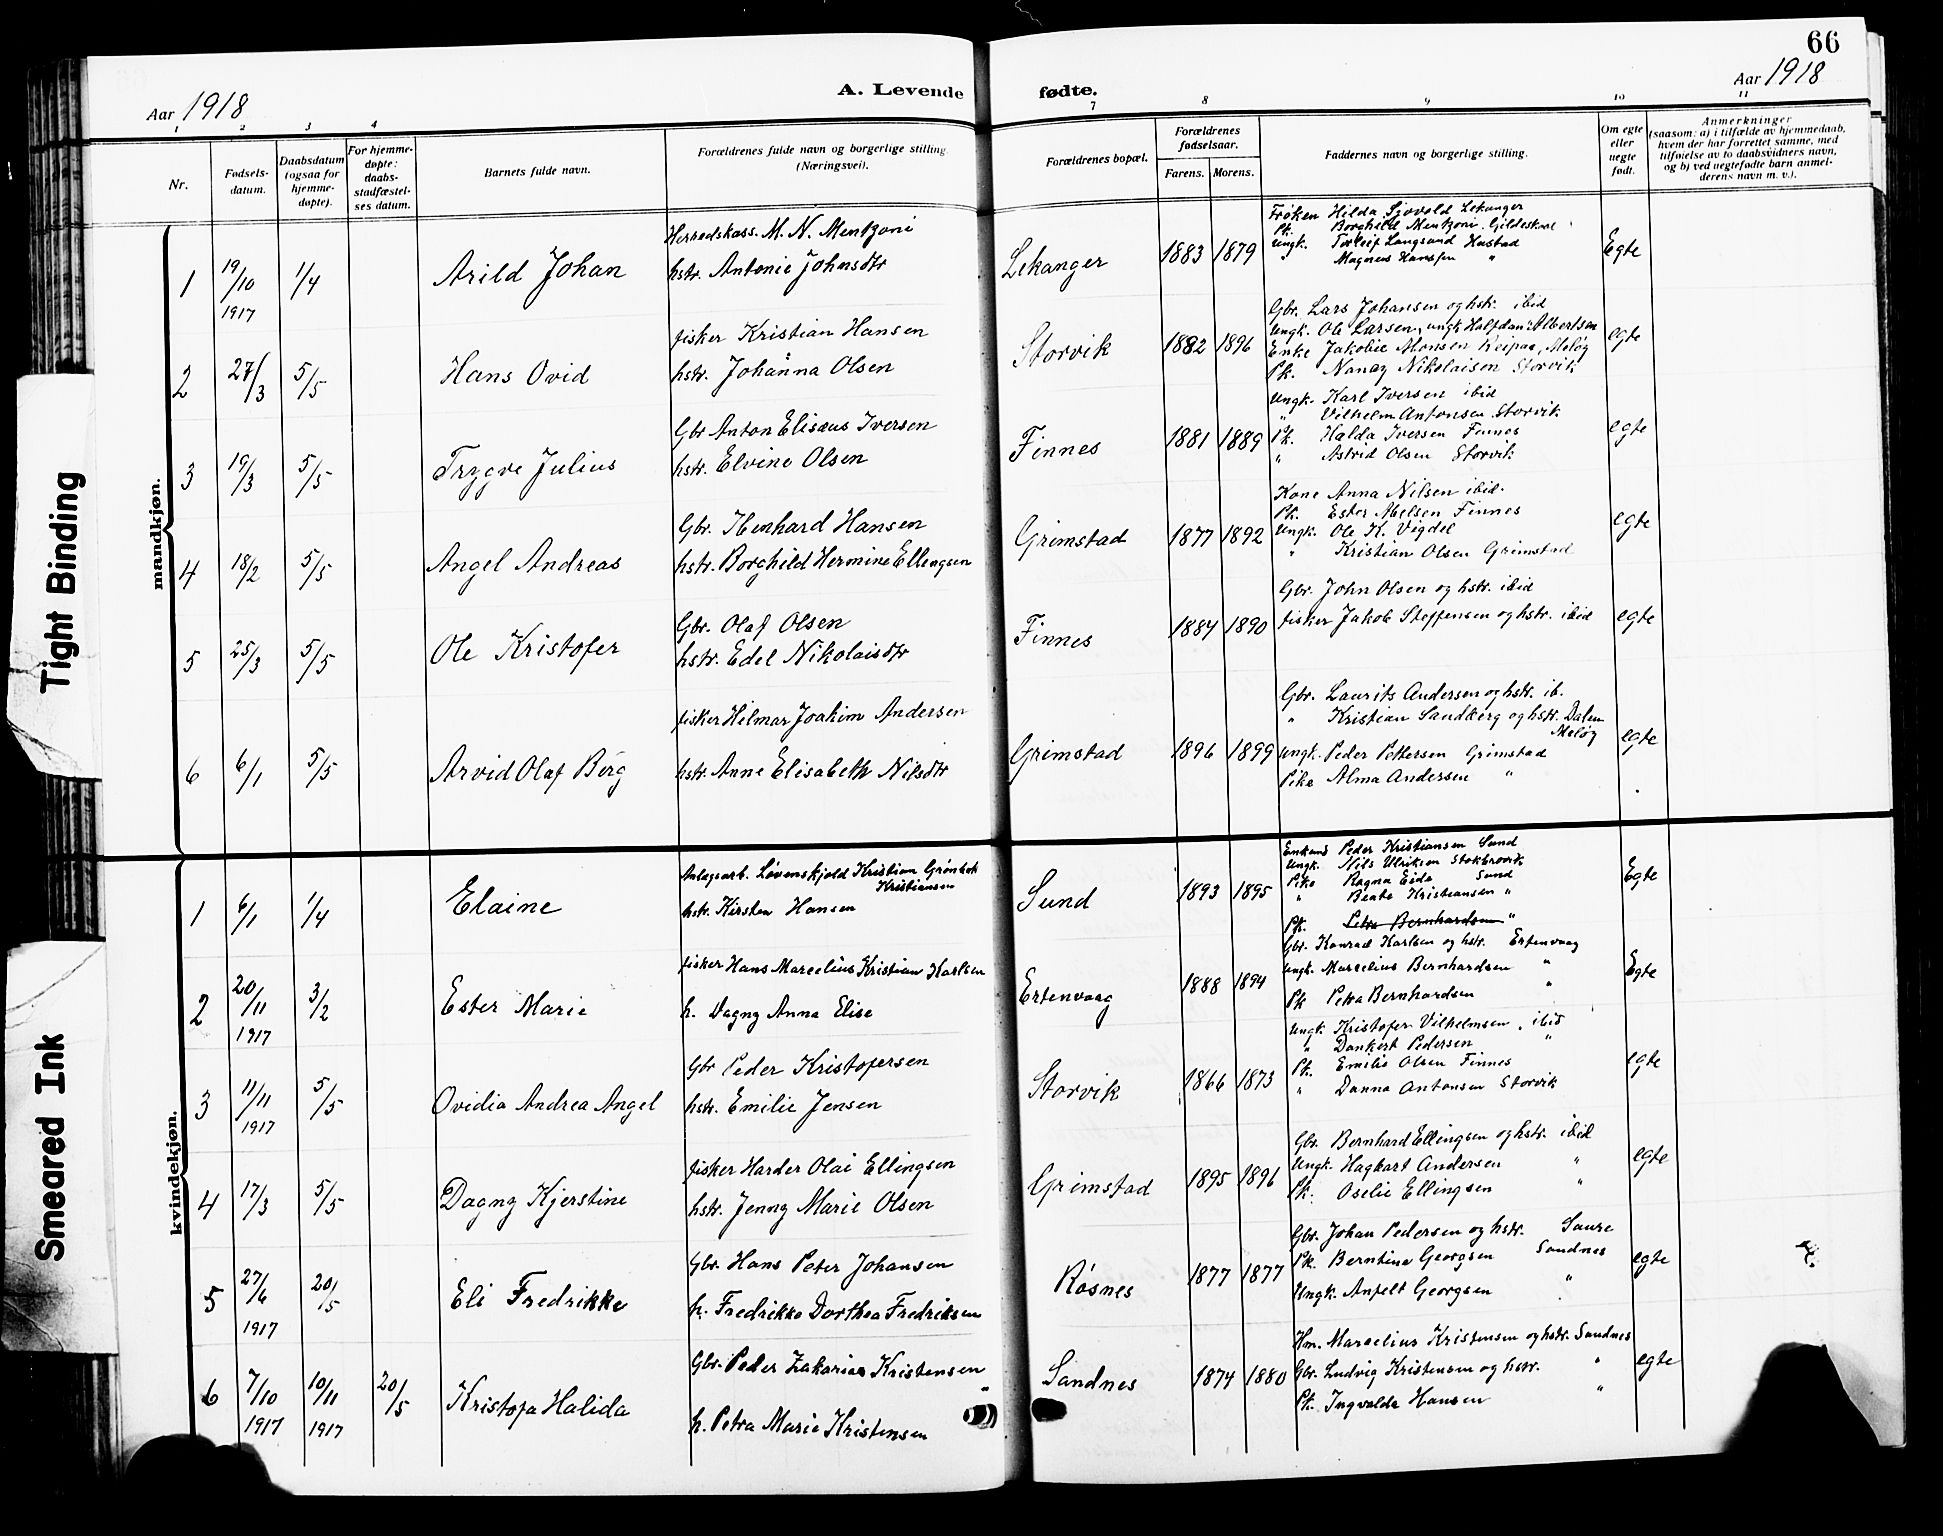 66
Aar 1918
A. Levende fødte.
Aar 1918
1 2 3 4 7 8 9 10 11
Nr.
Fødsels-
datum.
Daabsdatum
(ogsaa for
hjemme-
døpte).
For hjemme-
døpte:
daabs-
stadfæstel-
ses datum.
Barnets fulde navn.
Forældrenes fulde navn og borgerlige stilling.
(Næringsvei).
Forældrenes bopæl.
Forældrenes
fødselsaar.
Farens. Morens.
Faddernes navn og borgerlige stilling.
Om egte
eller
uegte
født.
Anmerkninger
(saasom: a) i tilfælde av hjemmedaab,
hvem der har forrettet samme, med
tilføielse av to daabsvidners navn,
og b) ved uegtefødte barn anmel-
derens navn m. v.).
mandkjøn.
1 19/10 1917 1/4 Arild Johan
Herredskass. M. N. Mentzoni
hstr. Antonie Johnsdtr
Lekanger 1883 1879
Frøken Hilda Sjovold Lekanger
Pk. Borghild Mentzoni Gildeskaal
Ungk. Torleif Langsand Hustad
" Magnus Hanssen "
Egte
2 27/3 5/5 Hans Ovid
fisker Kristian Hansen
hstr. Johanna Olsen
Storvik 1882 1896
Gbr. Lars Johansen og hstr. ibid
Ungk. Ole Larsen, ungk Halfdan Albertsen
Enke Jakobie Monsen Reipaa, Meløy
Pk. Nancy Nikolaisen Storvik
egte
3 19/3 5/5 Trygve Julius
Gbr Anton Elisæus Iversen
hstr. Elvine Olsen
Finnes 1881 1889
Ungk. Karl Iversen ibid
" Vilhelm Antonsen Storvik
Pk. Halda Iversen Finnes
" Astrid Olsen Storvik
egte
4 18/2 5/5 Angel Andreas
Gbr. Hansen
hstr. Borghild Hermine Ellengsen
Grimstad 1877 1892
Kone Anna Nilsen ibid.
Pk. Ester Nielsen Finnes
Ungk. Ole K. Vigdel
" Kristian Olsen Grimstad
egte
5 25/3 5/5 Ole Kristofer
Gbr. Olaf Olsen
hstr. Edel Nikolaisdtr
Finnes 1884 1890
Gbr. John Olsen og hstr. ibid
fisker Jakob Steffensen og hstr. ibid
egte
6 6/1 5/5 Arvid Olaf Berg
fisker Hilmar Joakim Andersen
hstr. Anne Elisabeth Nilsdtr
Grimstad 1896 1899
Gbr. Laurits Andersen og hstr. ib.
" Kristian Sandberg og hstr. Dalen
Meløy
Ungk. Peder Pettersen Grimstad
Pike Alma Andersen "
egte
kvindekjøn.
1 6/1 1/4 Elaine
Anlægsarb. Løvenskjold Kristian Grønbek
Kristiansen
hstr. Kirsten Hansen
Sund 1893 1895
Enkem. Peder Kristiansen Sund
Ungk. Nils Ulriksen
Pike Ragna Eide Sund
" Beate Kristiansen "
Pk. Petra Bernhardsen "
Egte
2 20/11 1917 3/2 Ester Marie
fisker Hans Marcelius Kristian Karlsen
h. Dagny Anna Elise
Ertenvaag 1888 1894
Gbr. Konrad Karlsen og hstr. Ertenvaag
Ungk. Marcelius Bernhardsen "
Pk Petra Bernhardsen "
Egte
3 11/11 1917 5/5 Ovidia Andrea Angel
Gbr Peder Kristofersen
hstr. Emilie Jensen
Storvik 1866 1873
Ungk. Kristofer Vilhelmsen, ibid
" Dankert Pedersen "
Pk. Emilie Olsen Finnes
" Danna Antonsen Storvik
egte
4 17/3 5/5 Dagny Kjerstine
fisker Harder Olai Ellingsen
hstr. Jenny Marie Olsen
Grimstad 1895 1896
Gbr. Bernhard Ellingsen og hstr. ibid
Ungk. Hagbart Andersen "
Pk. Oselie Ellingsen "
egte
5 27/6 1917 20/5 Eli Fredrikke
Gbr. Hans Peter Johansen
h. Fredrikke Dorthea Fredriksen
Røsnes 1877 1877
Gbr. Johan Pedersen og hstr. Saure
Pk. Berntine Georgsen Sandnes
Ungk. Anfelt Georgsen "
egte
6 7/10 1917 10/11 1917 20/5 Kristofa Halida
Gbr. Peder Zakarias Kristensen
h. Petra Marie Kristensen
Sandnes 1874 1880
Hm. Marcelius Kristensen og hstr. Sandnes
Gbr. Ludvig Kristensen og hstr. "
Pk. Ingvalda Hansen "
egte
Tight Binding
Smeared Ink